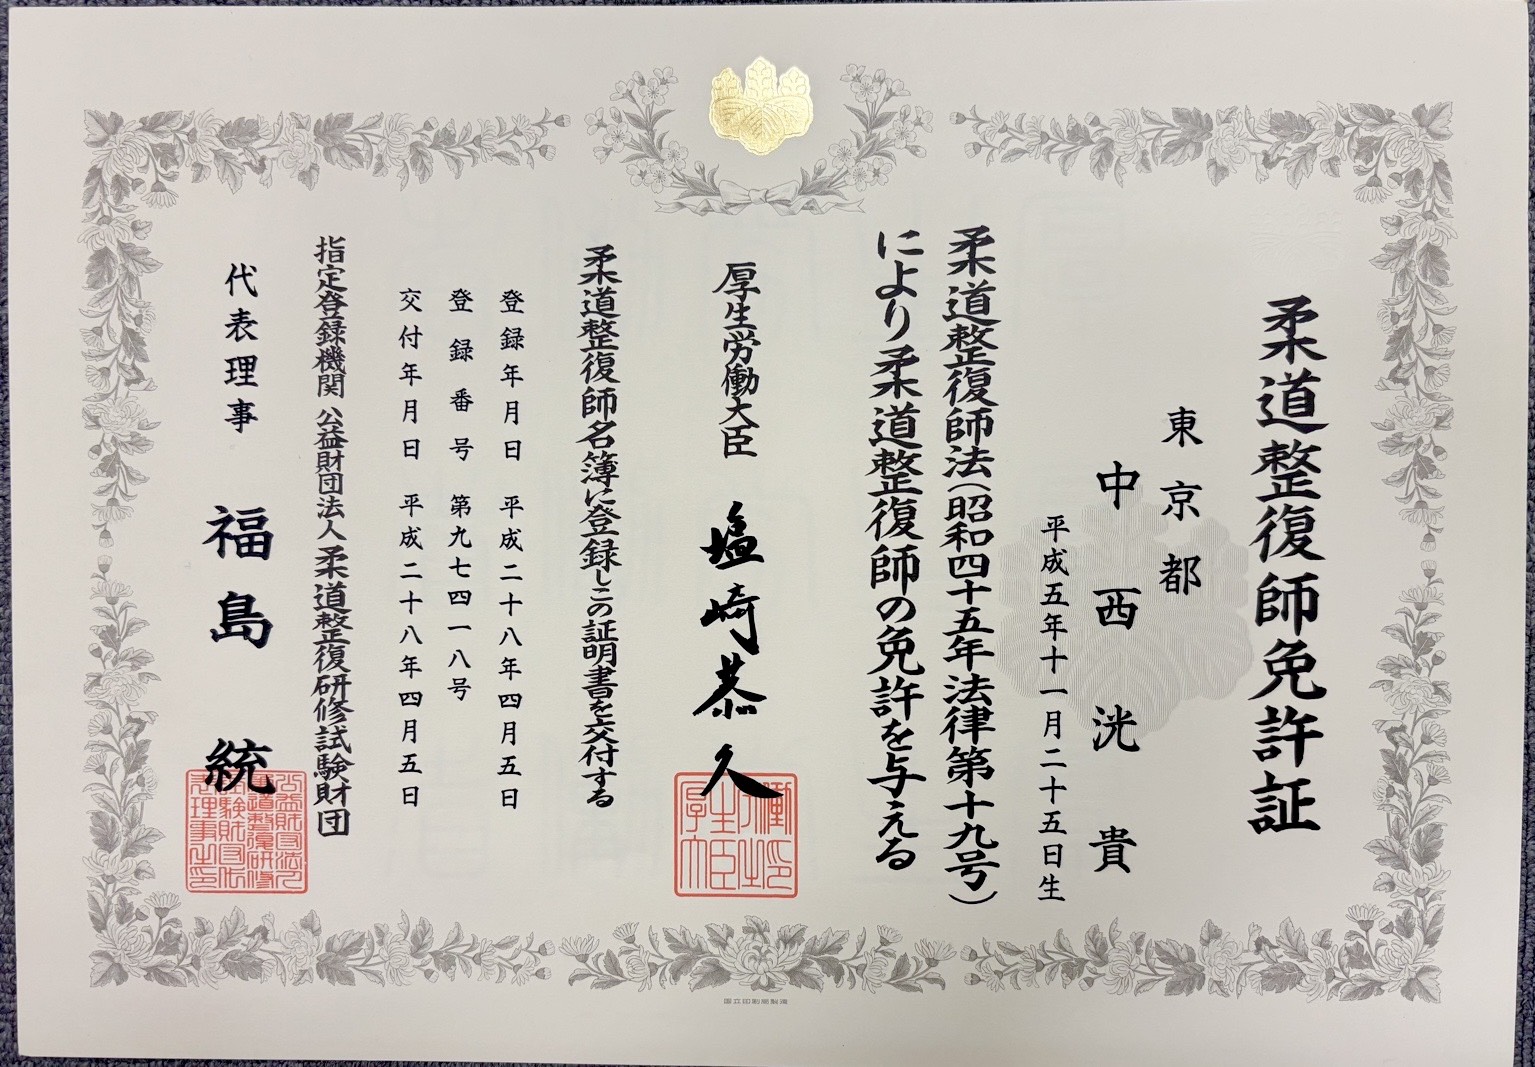 柔道整復師免許証
東京都
中西洸貴
平成五年十一月二十五日生
柔道整復師法(昭和四十五年法律第十九号)
により柔道整復師の免許を与える
厚生労働大臣 塩崎恭久
柔道整復師名簿に登録しこの証明書を交付する
登録年月日 平成二十八年四月五日
登録番号 第九七四一八号
交付年月日 平成二十八年四月五日
指定登録機関 公益財団法人 柔道整復研修試験財団
代表理事 福島統
国立印刷局製造